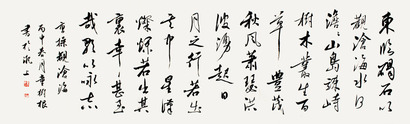 東臨碣石以
觀滄海水何
澹澹山島竦峙
樹木叢生百
草豐茂
秋風蕭瑟洪
波湧起日
月之行若出
其中星漢
燦爛若出其
裏幸甚至
哉歌以詠志
曹操觀滄海
丙申
書於